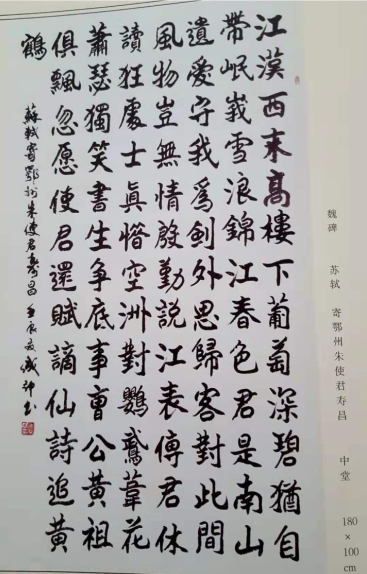 江漢西来高樓下葡萄深碧猶自
帶岷峩雪浪錦江春色君是南山
遺愛守我爲劍外思歸客對此間
風物豈無情殷勤說江表傳君休
讀狂處士眞惜空洲對鸚鵡葦花
蕭瑟獨笑書生争底事曹公黃祖
俱飄忽愿使君還賦謫仙詩追黃
鶴
蘇軾寄鄂州朱使君壽昌 壬辰夏
魏碑 苏轼 寄鄂州朱使君寿昌 中堂 180×100cm